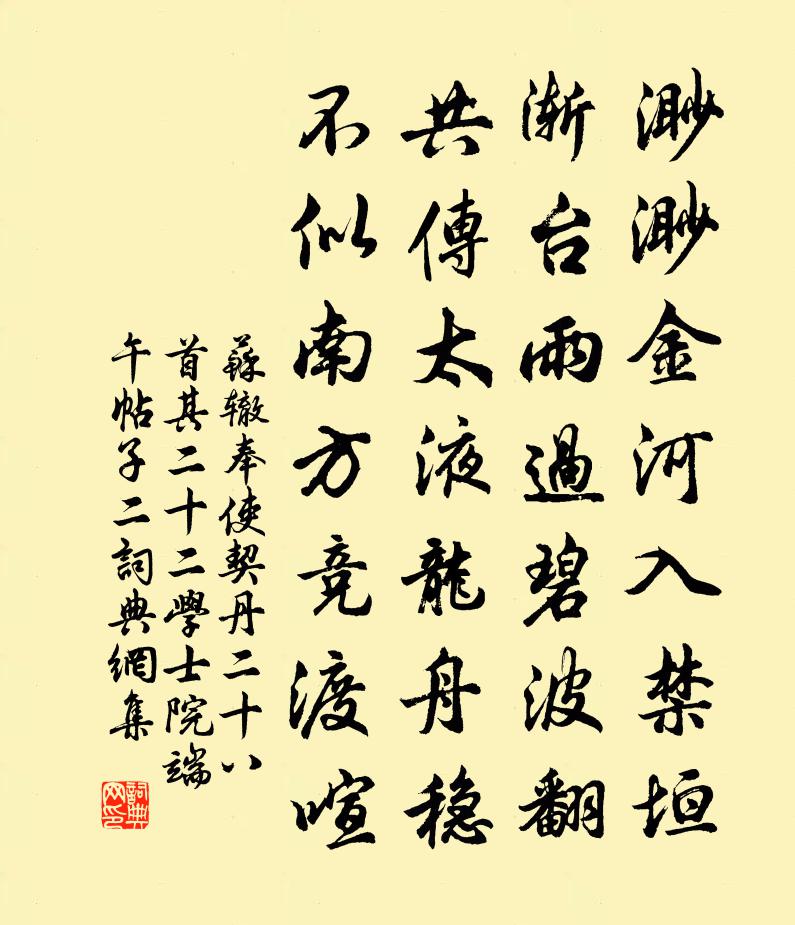 渺渺金河入禁垣
漸台雨過碧波翻
共傳太液龍舟穩
不似南方競渡喧
蘇轍奉使契丹二十八
首其二十二學士院端
午帖子二詞典網集
詞典网印